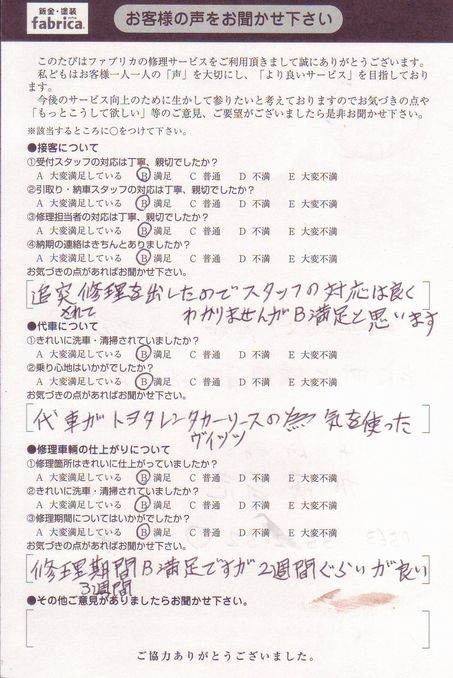 鈑金・塗装
fabrica.
お客様の声をお聞かせ下さい
このたびはファブリカの修理サービスをご利用頂きまして誠にありがとうございます。
私どもはお客様一人一人の「声」を大切にし、「より良いサービス」を目指しており
ます。
今後のサービス向上のために生かして参りたいと考えておりますのでお気づきの点や
「もっとこうして欲しい」等のご意見、ご要望がございましたら是非お聞かせ下さい。
※該当するところに○をつけて下さい。
●接客について
①受付スタッフの対応は丁寧、親切でしたか?
A 大変満足している B 満足 C 普通 D 不満 E 大変不満
②引取り・納車スタッフの対応は丁寧、親切でしたか?
A 大変満足している B 満足 C 普通 D 不満 E 大変不満
③修理担当者の対応は丁寧、親切でしたか?
A 大変満足している B 満足 C 普通 D 不満 E 大変不満
④納期の連絡はきちんとありましたか?
A 大変満足している B 満足 C 普通 D 不満 E 大変不満
お気づきの点があればお聞かせ下さい。
追突修理を出したのでスタッフの対応は良く
されて わかりませんがB満足と思います
●代車について
①きれいに洗車・清掃されていましたか?
A 大変満足している B 満足 C 普通 D 不満 E 大変不満
②乗り心地はいかがでしたか?
A 大変満足している B 満足 C 普通 D 不満 E 大変不満
お気づきの点があればお聞かせ下さい。
代車がトヨタレンタカーリースの為気を使った
ヴィッツ
●修理車輌の仕上がりについて
①修理箇所はきれいに仕上がっていましたか?
A 大変満足している B 満足 C 普通 D 不満 E 大変不満
②きれいに洗車・清掃されていましたか?
A 大変満足している B 満足 C 普通 D 不満 E 大変不満
③修理期間についてはいかがでしたか?
A 大変満足している B 満足 C 普通 D 不満 E 大変不満
お気づきの点があればお聞かせ下さい。
修理期間B満足ですが2週間ぐらいが良い
3週間
●その他ご意見がありましたらお聞かせ下さい。
ご協力ありがとうございました。